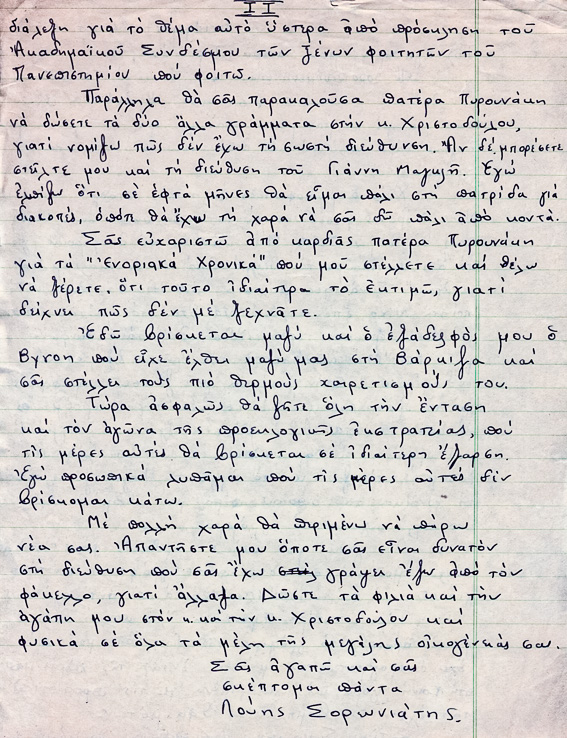 II
διάλεξη γιά τό θέμα αὐτό ὕστερα ἀπό πρόσκληση τοῦ
Ἀκαδημαϊκοῦ Συνδέσμου τῶν ξένων φοιτητῶν τοῦ
Πανεπιστημίου πού φοιτῶ.
Παράλληλα θά σᾶς παρακαλοῦσα πατέρα Πυρουνάκη
νά δώσετε τά δύο ἄλλα γράμματα στήν κ. Χριστοδούλου,
γιατί νομίζω πώς δέν ἔχω τή σωστή διεύθυνση. Ἄν δέ μπορέσετε
στεῖλτε μου καί τή διεύθυνση τοῦ Γιάννη Μαγκλῆ. Ἐγώ
ἐλπίζω ὅτι σέ ἑφτά μῆνες θά εἶμαι πάλι στή πατρίδα γιά
διακοπές, ὁπότε θά ἔχω τή χαρά νά σᾶς δῶ πάλι ἀπό κοντά.
Σᾶς εὐχαριστῶ ἀπό καρδιᾶς πατέρα Πυρουνάκη
γιά τά "Ἐνοριακά Χρονικά" πού μοῦ στέλλετε καί θέλω
νά ξέρετε, ὅτι τοῦτο ἰδιαίτερα τό ἐκτιμῶ, γιατί
δείχνει πώς δέν μέ ξεχνᾶτε.
Ἐδῶ βρίσκεται μαζύ καί ὁ ἐξάδελφός μου ὁ
Byron πού εἶχε ἔλθει μαζύ μας στή Βάρκιζα καί
σᾶς στέλλει τούς πιό θερμούς χαιρετισμούς του.
Τώρα ἀσφαλῶς θά ζῆτε ὅλη τήν ἔνταση
καί τόν ἀγῶνα τῆς προεκλογικῆς ἐκστρατείας, πού
τίς μέρες αὐτές θά βρίσκεται σέ ἰδιαίτερη ἔξαρση.
Ἐγώ προσωπικά λυπᾶμαι πού τίς μέρες αὐτές δέν
βρίσκομαι κάτω.
Μέ πολλή χαρά θά περιμένω νά πάρω
νέα σας. Ἀπαντῆστε μου ὅποτε σᾶς εἶναι δυνατόν
στή διεύθυνση πού σᾶς ἔχω γράψει ἔξω ἀπό τόν
φάκελλο, γιατί ἄλλαξα. Δῶστε τά φιλιά καί τήν
ἀγάπη μου στόν κ. καί τήν κ. Χριστοδούλου καί
φυσικά σέ ὅλα τά μέλη τῆς μεγάλης οἰκογένειάς σας.
Σᾶς ἀγαπῶ καί σᾶς
σκέπτομαι πάντα
Λούης Σορωνιάτης.